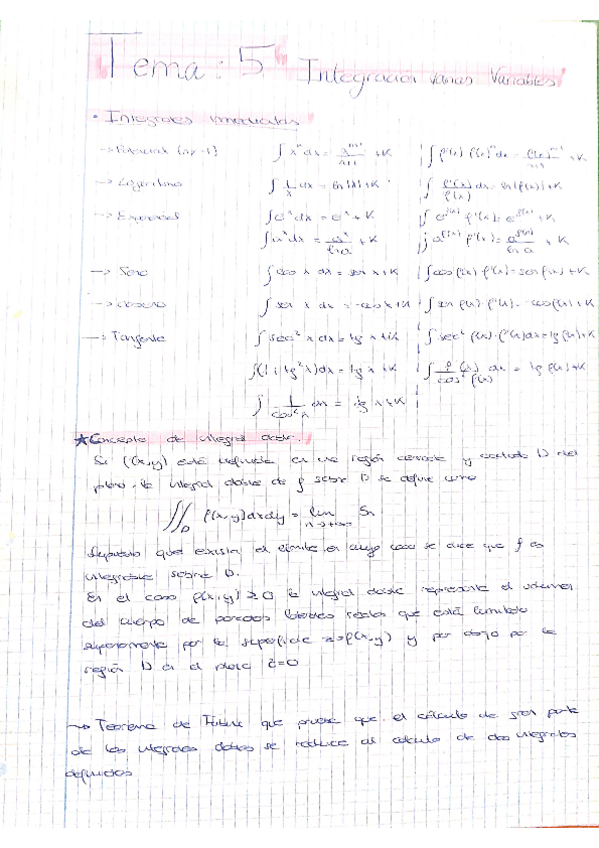 Tema: 5 Integración varias Variables
• Integrales inmediatas
→ Potencial (n≠-1) ∫ xⁿ dx = xⁿ⁺¹/n+1 + K ∫ f'(x) f(x)ⁿ dx = f(x)ⁿ⁺¹/n+1 + K
→ Logaritmo ∫ 1/x dx = ln|x| + K ∫ f'(x)/f(x) dx = ln|f(x)| + K
→ Exponencial ∫ eˣ dx = eˣ + K ∫ e^f(x) f'(x) = e^f(x) + K
∫ aˣ dx = aˣ/ln a + K ∫ a^f(x) f'(x) = a^f(x)/ln a + K
→ Seno ∫ cos x dx = sen x + K ∫ cos f(x) f'(x) = sen f(x) + K
→ coseno ∫ sen x dx = -cos x + K ∫ sen f(x) · f'(x) = -cos f(x) + K
→ Tangente ∫ sec² x dx = tg x + K ∫ sec² f(x) · f'(x) dx = tg f(x) + K
∫ (1 + tg² x) dx = tg x + K ∫ f'(x)/cos² f(x) dx = tg f(x) + K
∫ 1/cos² x dx = tg x + K
★ Concepto de integral doble.
Si f(x,y) está definida en una región cerrada y acotada D del
plano, la integral doble de f sobre D se define como
∬D f(x,y) dx dy = lim n→+∞ Sn
Supuesto que exista el límite en cuyo caso se dice que f es
integrable sobre D.
En el caso f(x,y) ≥ 0 la integral doble representa el volumen
del cuerpo de paredes laterales rectas que está limitado
superiormente por la superficie z=f(x,y) y por abajo por la
región D en el plano z=0
→ Teorema de Fubini que prueba que el cálculo de gran parte
de las integrales dobles se reduce al calculo de dos integrales
definidas